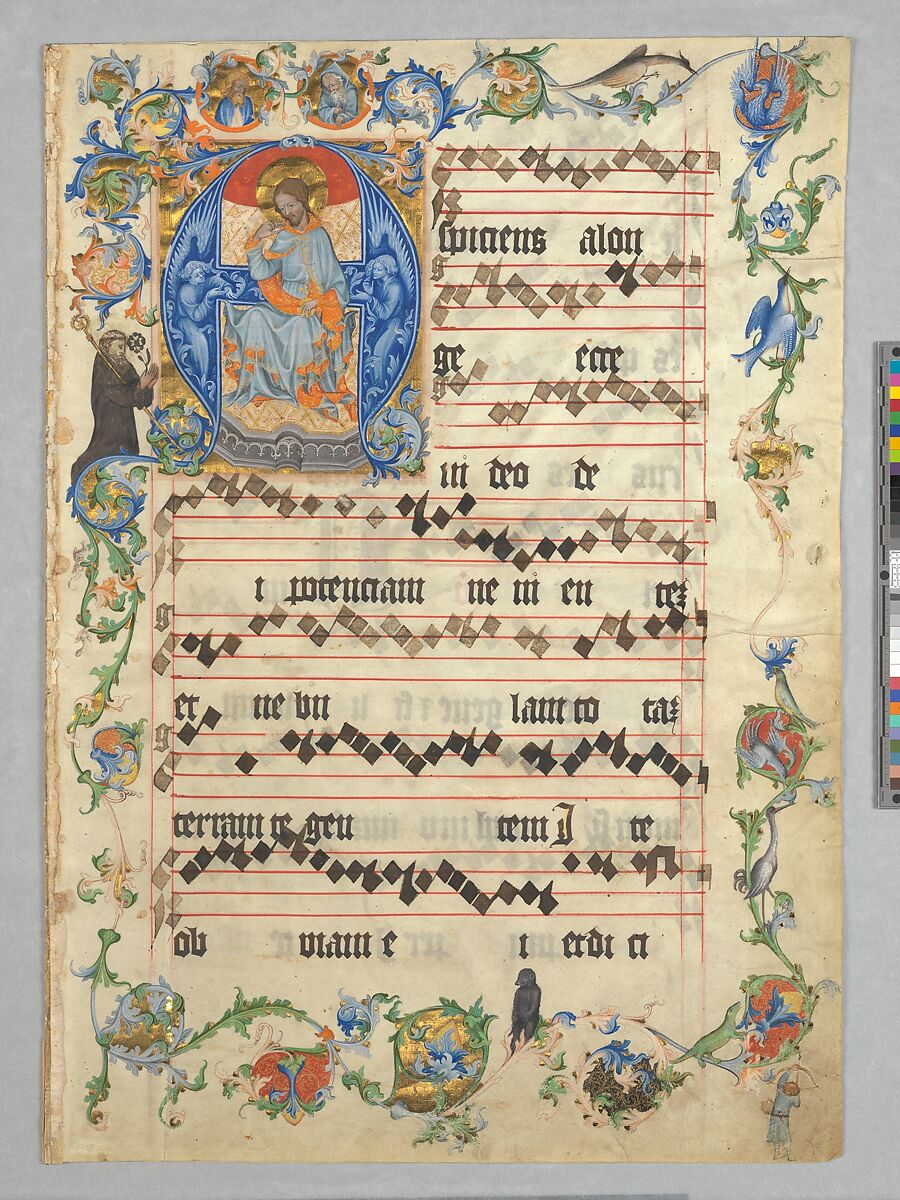 A
spiciens a lon
ge ecce
vi deo de
i potenciam ve ni en tez
et ne bu lam to taz
terram te gen tem I te
ob viam e i et di ci